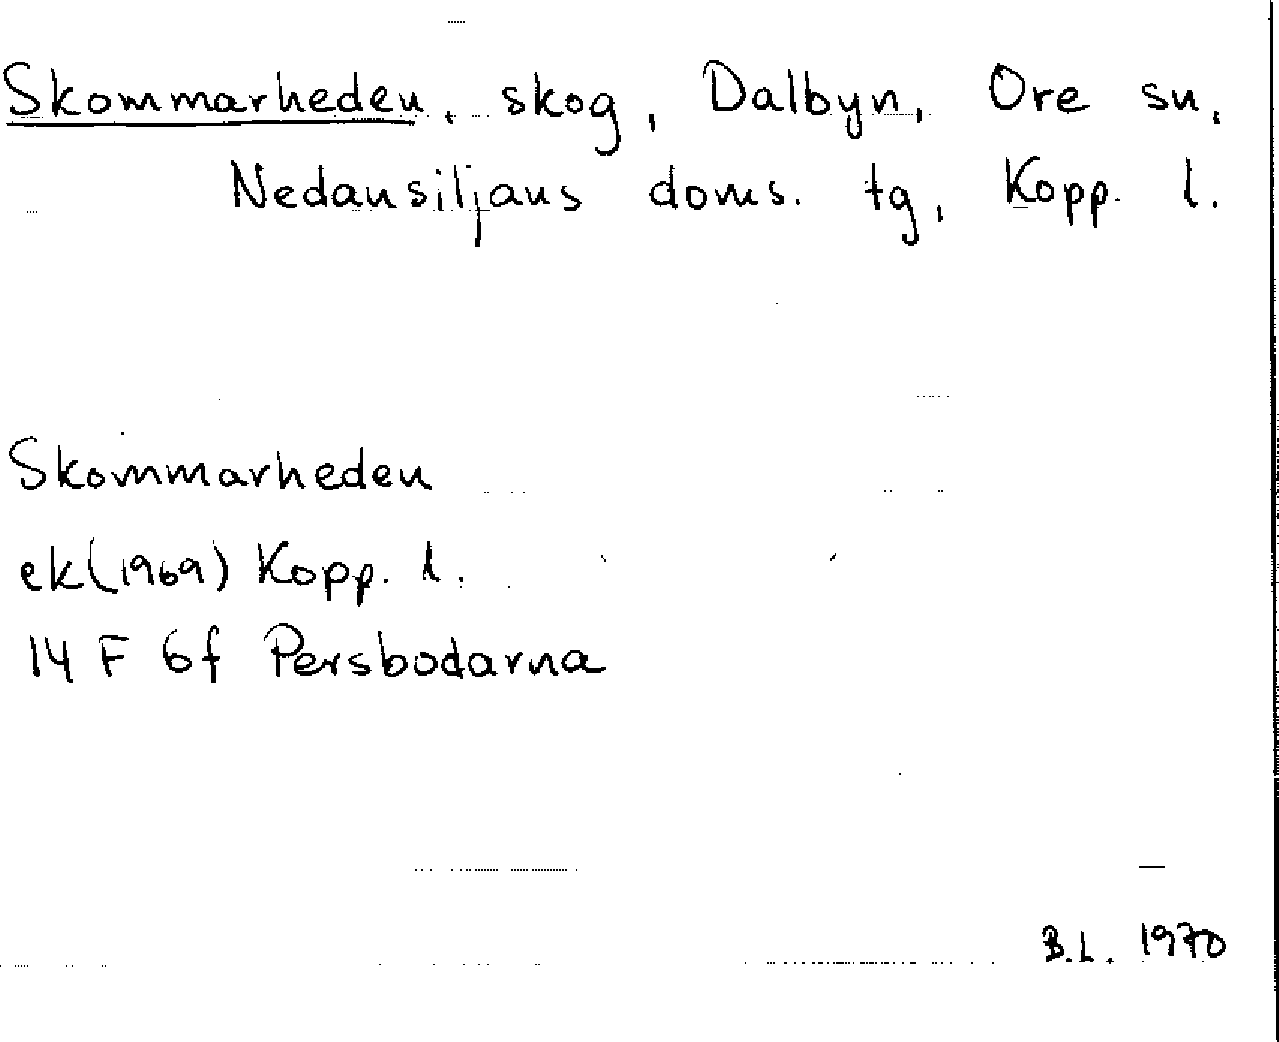 Skommarheden, skog, Dalbyn, Ore sn,
Nedansiljans doms. tg, Kopp. l.
Skommarheden
ek (1969) Kopp. l.
14 F 6f Persbodarna
B.L. 1970